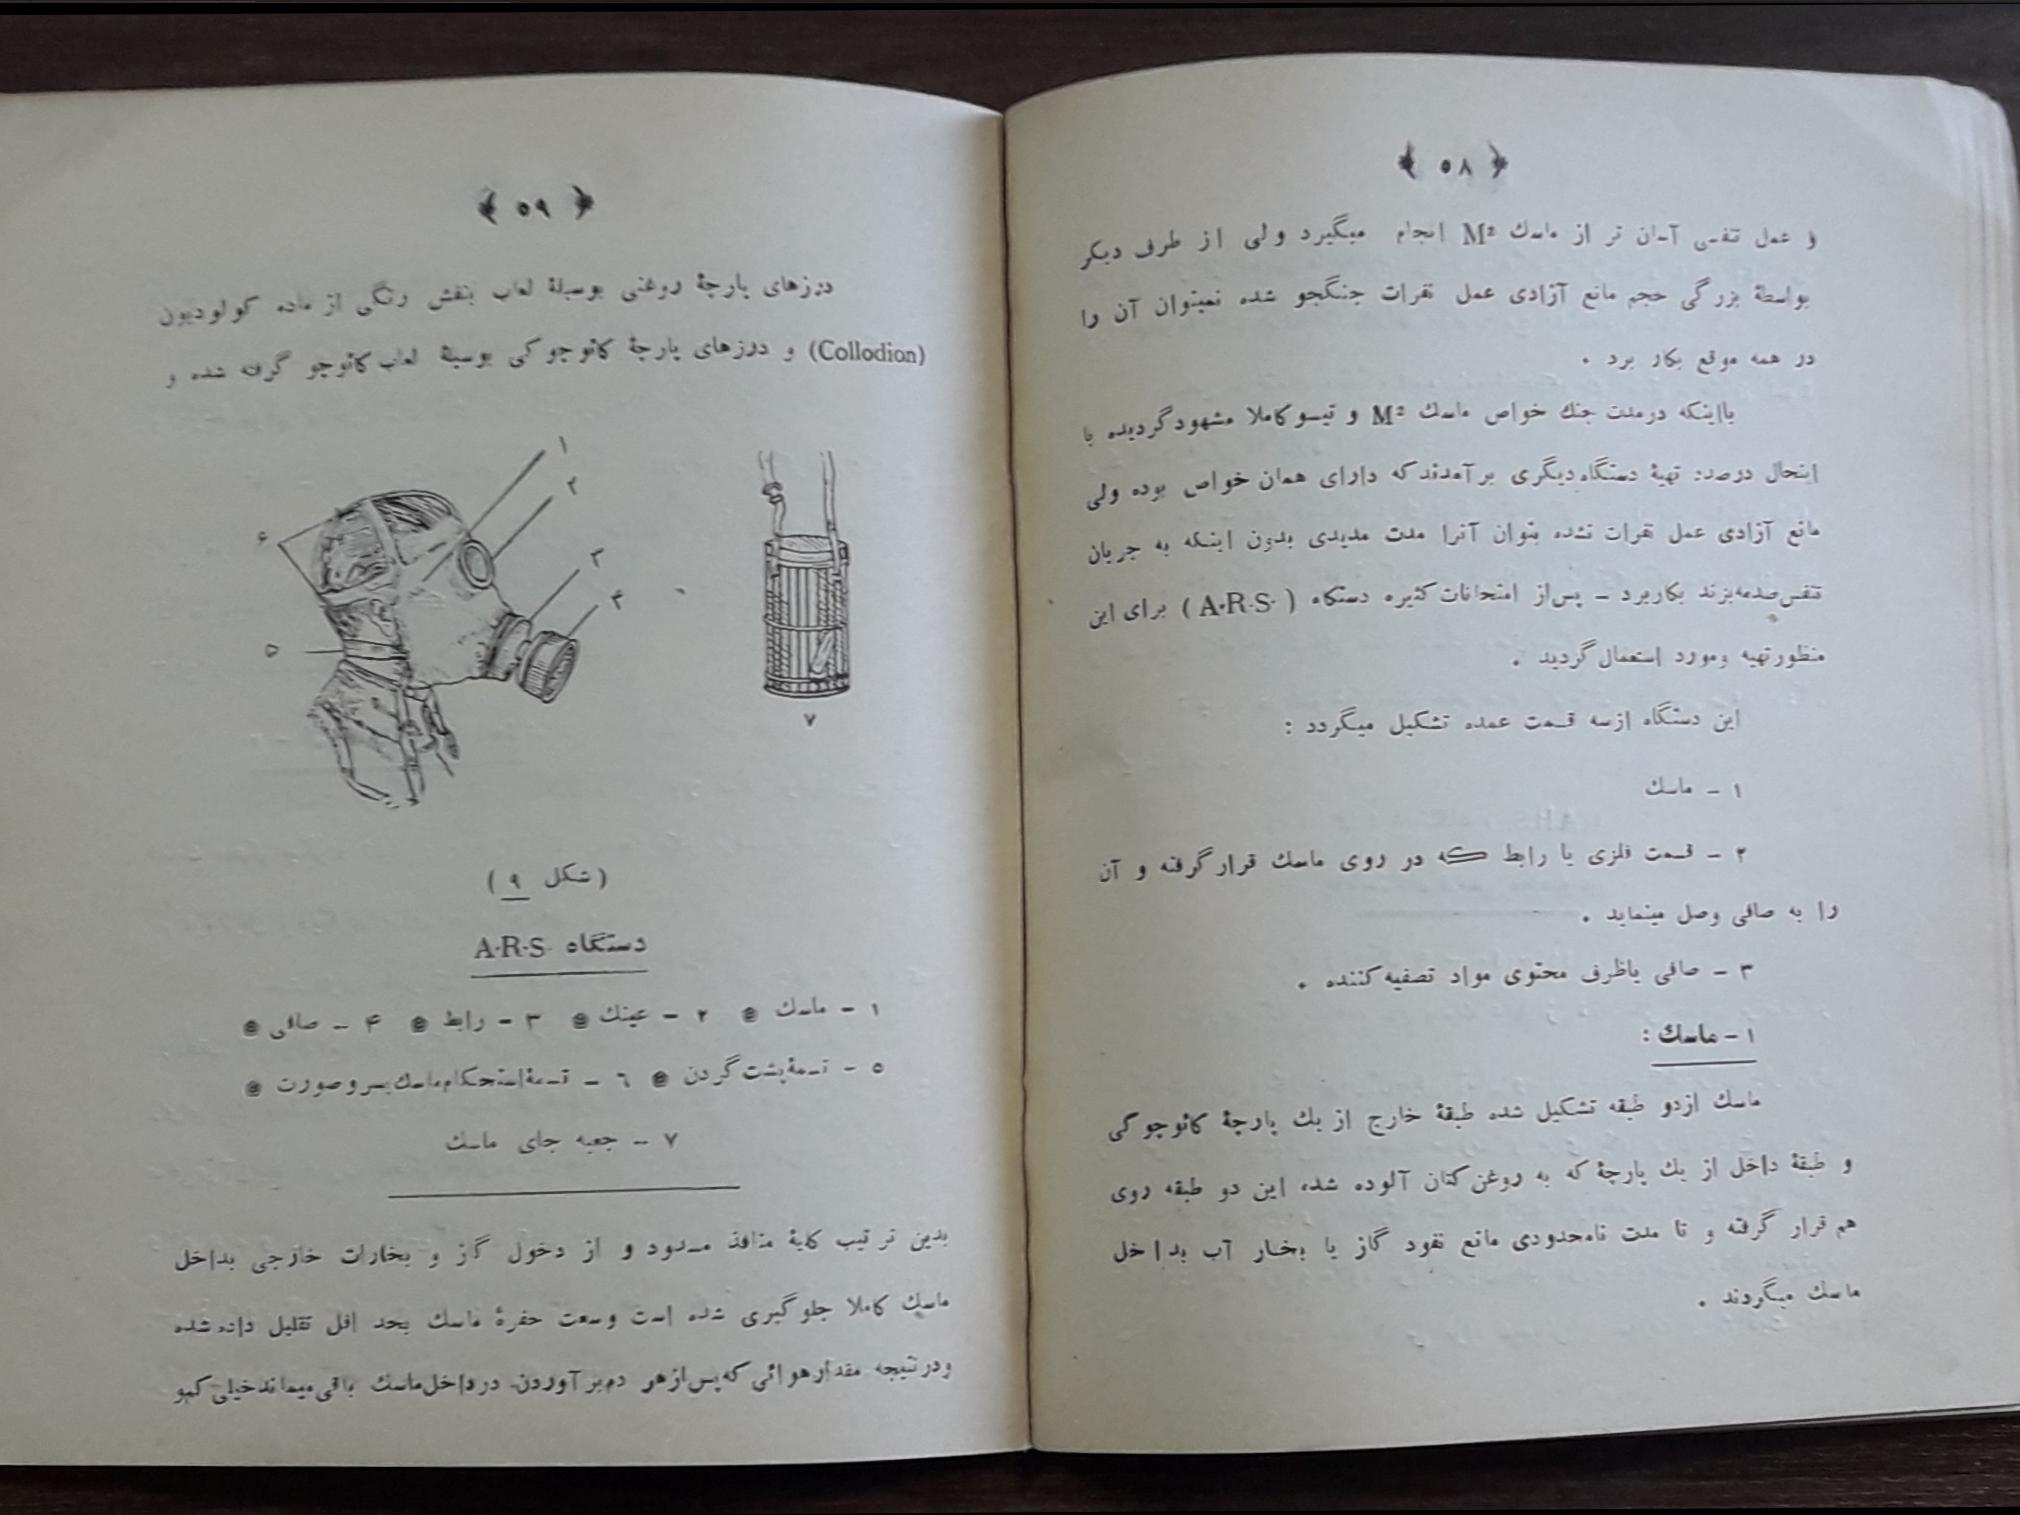 ﴿ ٥٨ ﴾
و عمل تنفس آسان تر از ماسك M² انجام میگیرد ولی از طرف دیگر
بواسطهٔ بزرگی حجم مانع آزادی عمل نفرات جنگجو شده نمیتوان آن را
در همه موقع بکار برد .
بااینکه درمدت جنك خواص ماسك M² و تیسو کاملا مشهود گردیده با
اینحال درصدد تهیهٔ دستگاه دیگری بر آمدند که دارای همان خواص بوده ولی
مانع آزادی عمل نفرات نشده بتوان آنرا مدت مدیدی بدون اینکه به جریان
تنفس صدمه بزند بکاربرد – پس از امتحانات کثیره دستگاه (A·R·S·) برای این
منظور تهیه ومورد استعمال گردید .
این دستگاه ازسه قسمت عمده تشکیل میگردد :
۱ – ماسك
۲ – قسمت فلزی یا رابط که در روی ماسك قرار گرفته و آن
را به صافی وصل مینماید .
۳ – صافی یاظرف محتوی مواد تصفیه کننده .
۱ – ماسك :
ماسك ازدو طبقه تشکیل شده طبقهٔ خارج از یك پارچهٔ کائوچوکی
و طبقهٔ داخل از یك پارچهٔ که به روغن کتان آلوده شده این دو طبقه روی
هم قرار گرفته و تا مدت نامحدودی مانع نفوذ گاز یا بخار آب بداخل
ماسك میگردند .
﴿ ٥٩ ﴾
درزهای پارچهٔ روغنی بوسیلهٔ لعاب بنفش رنگی از ماده کولودیون
(Collodion) و درزهای پارچهٔ کائوچوکی بوسیلهٔ لعاب کائوچو گرفته شده و
۱
۲
۳
۴
۶
۵
۷
(شکل ۹)
دستگاه A·R·S·
۱ – ماسك ۲ – عینك ۳ – رابط ۴ – صافی
۵ – تسمهٔ پشت گردن ٦ – تسمهٔ استحکام ماسك بسر و صورت
۷ – جعبه جای ماسك
بدین ترتیب کلیهٔ منافذ مسدود و از دخول گاز و بخارات خارجی بداخل
ماسك کاملا جلوگیری شده است وسعت حفرهٔ ماسك بحد اقل تقلیل داده شده
ودرنتیجه مقدار هوائی که پس از هر دم بر آوردن در داخل ماسك باقی میماند خیلی کم و